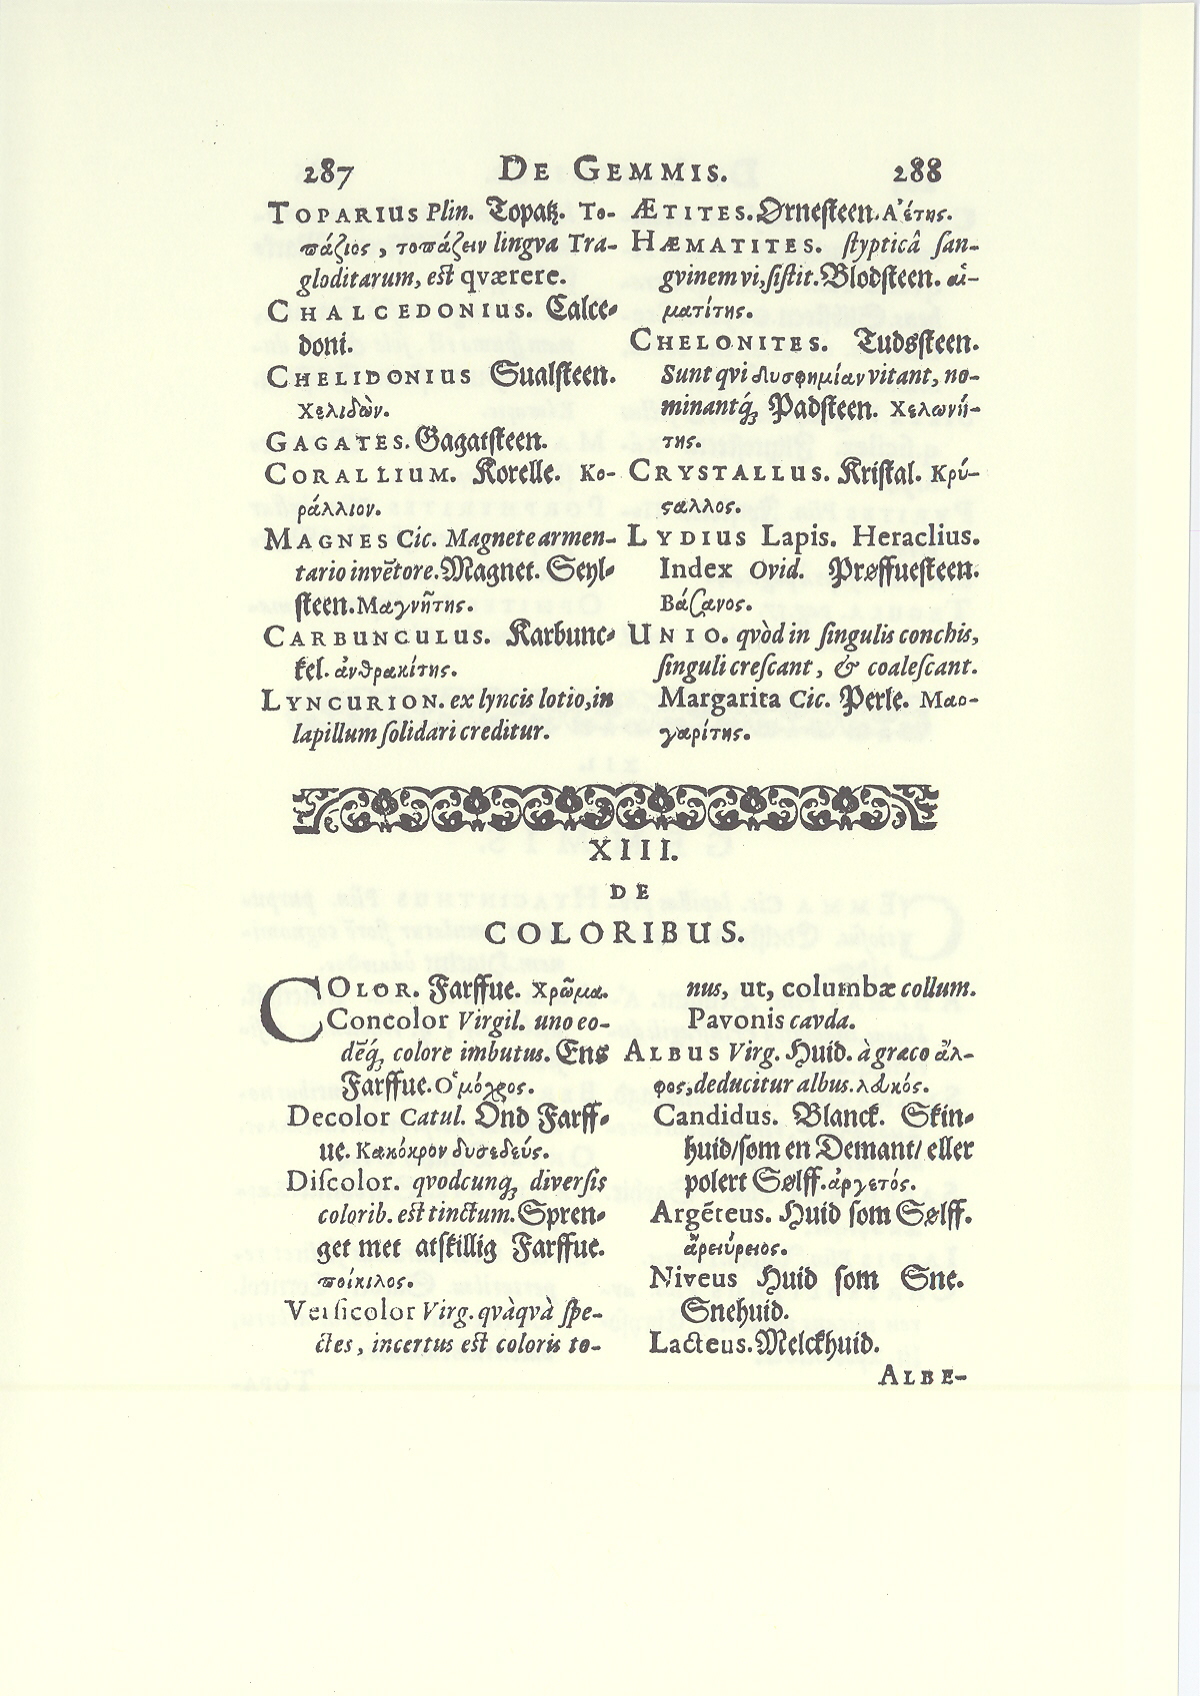 287 DE GEMMIS. 288
TOPARIUS Plin. Topatz. Το-
πάζιος, τοπάζειν lingva Tra-
gloditarum, est qværere.
CHALCEDONIUS. Calce-
doni.
CHELIDONIUS Sualsteen.
Χελιδὼν.
GAGATES. Gagatsteen.
CORALLIUM. Korelle. Κο-
ράλλιον.
MAGNES Cic. Magnete armen-
tario invētore. Magnet. Seyl-
steen. Μαγνῆτης.
CARBUNCULUS. Karbunc-
kel. ἀνθρακίτης.
LYNCURION. ex lyncis lotio, in
lapillum solidari creditur.
ÆTITES. Ørnesteen. Α'έτης.
HÆMATITES. stypticâ san-
gvinem vi, sistit. Blodsteen. αἱ-
ματίτης.
CHELONITES. Tudssteen.
Sunt qvi δυσφημίαν vitant, no-
minantq́; Padsteen. Χελωνή-
της.
CRYSTALLUS. Kristal. Κρύ-
ςαλλος.
LYDIUS Lapis. Heraclius.
Index Ovid. Prøffuesteen.
Βάσανος.
UNIO. qvòd in singulis conchis,
singuli crescant, & coalescant.
Margarita Cic. Perle. Μαρ-
γαρίτης.
XIII.
DE
COLORIBUS.
COLOR. Farffue. Χρῶμα.
Concolor Virgil. uno eo-
dēq́; colore imbutus. Ens
Farffue. Ο῾μόχρος.
Decolor Catul. Ond Farff-
ue. Κακόκρον δυσεδεύς.
Discolor. qvodcunq; diversis
colorib. est tinctum. Spren-
get met atskillig Farffue.
ποίκιλος.
Versicolor Virg. qvàqvà spe-
ctes, incertus est coloris to-
nus, ut, columbæ collum.
Pavonis cavda.
ALBUS Virg. Huid. à græco ἄλ-
φος, deducitur albus. λδκός.
Candidus. Blanck. Skin-
huid/som en Demant/ eller
polert Sølff. ἀργετός.
Argēteus. Huid som Sølff.
ἄργύρειος.
Niveus Huid som Sne.
Snehuid.
Lacteus. Melckhuid.
ALBE-